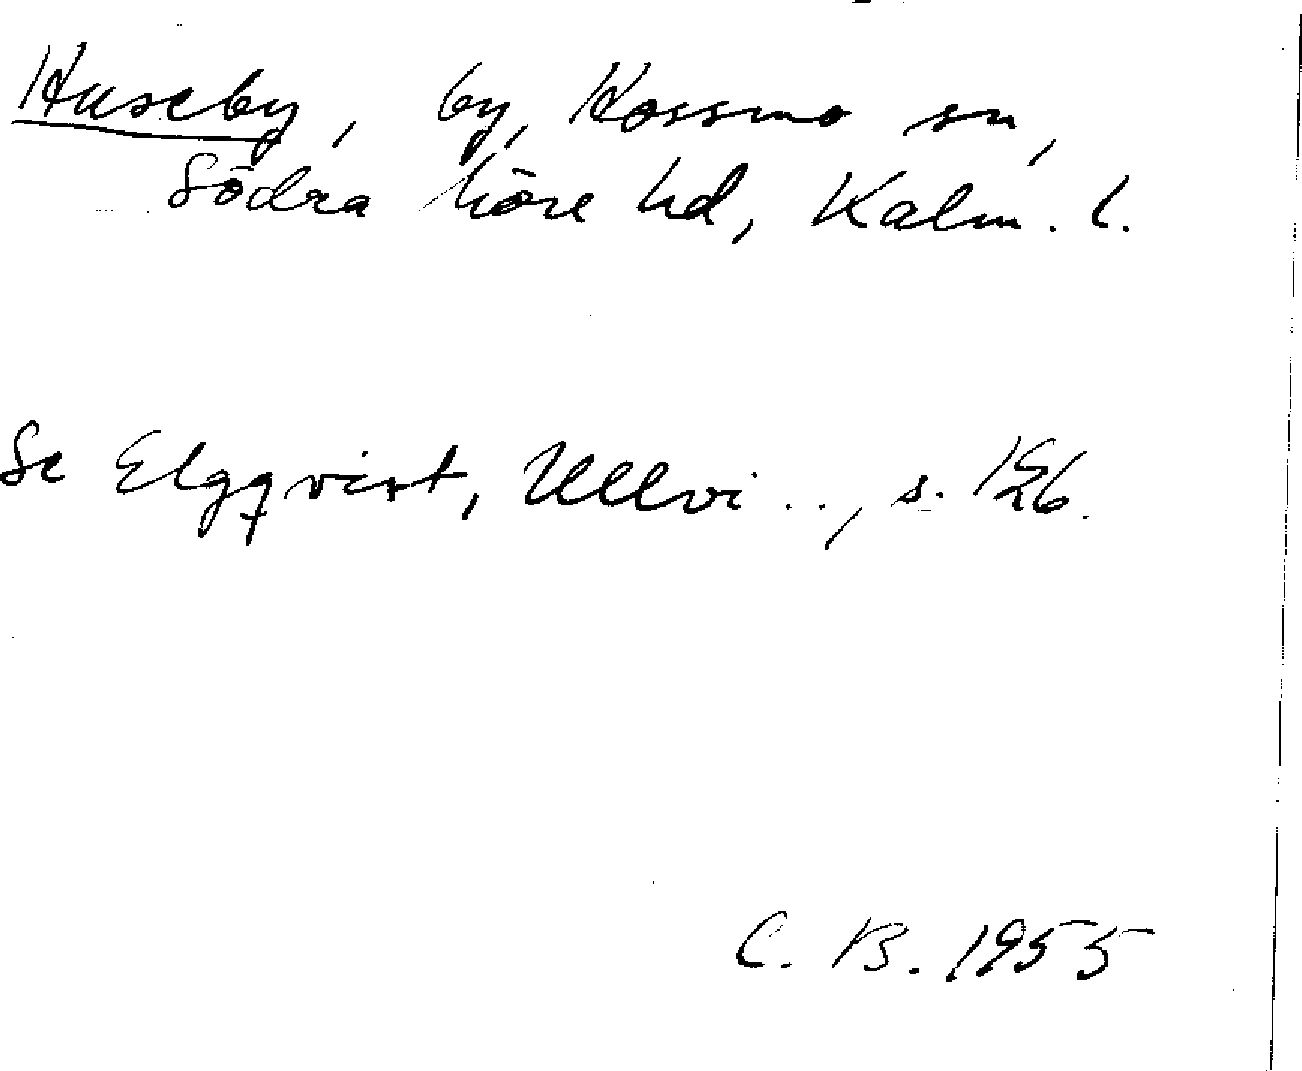 Huseby, by, Hossmo sn,
Södra Möre hd, Kalm. l.
Se Elgqvist, Ullvi . . , s.
C. B. 1955